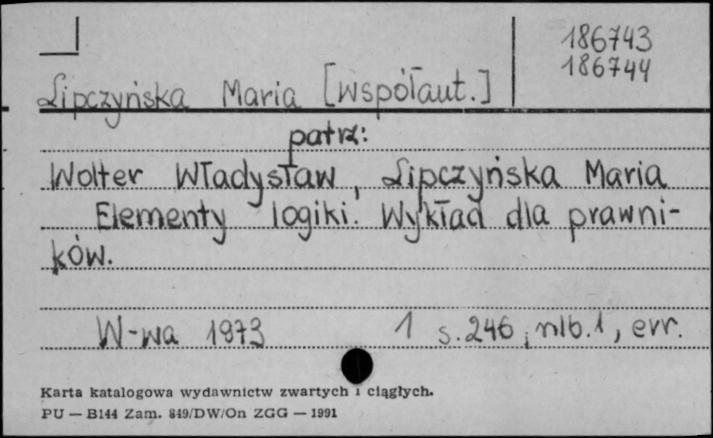 186743
186744
Lipczyńska Maria [współaut.]
patrz:
Wolter Władysław, Lipczyńska Maria
Elementy logiki. Wykład dla prawni-
ków.
W-wa 1973 1 s. 246, nlb. 1, err.
Karta katalogowa wydawnictw zwartych i ciągłych.
PU — B144 Zam. 849/DW/On ZGG — 1991